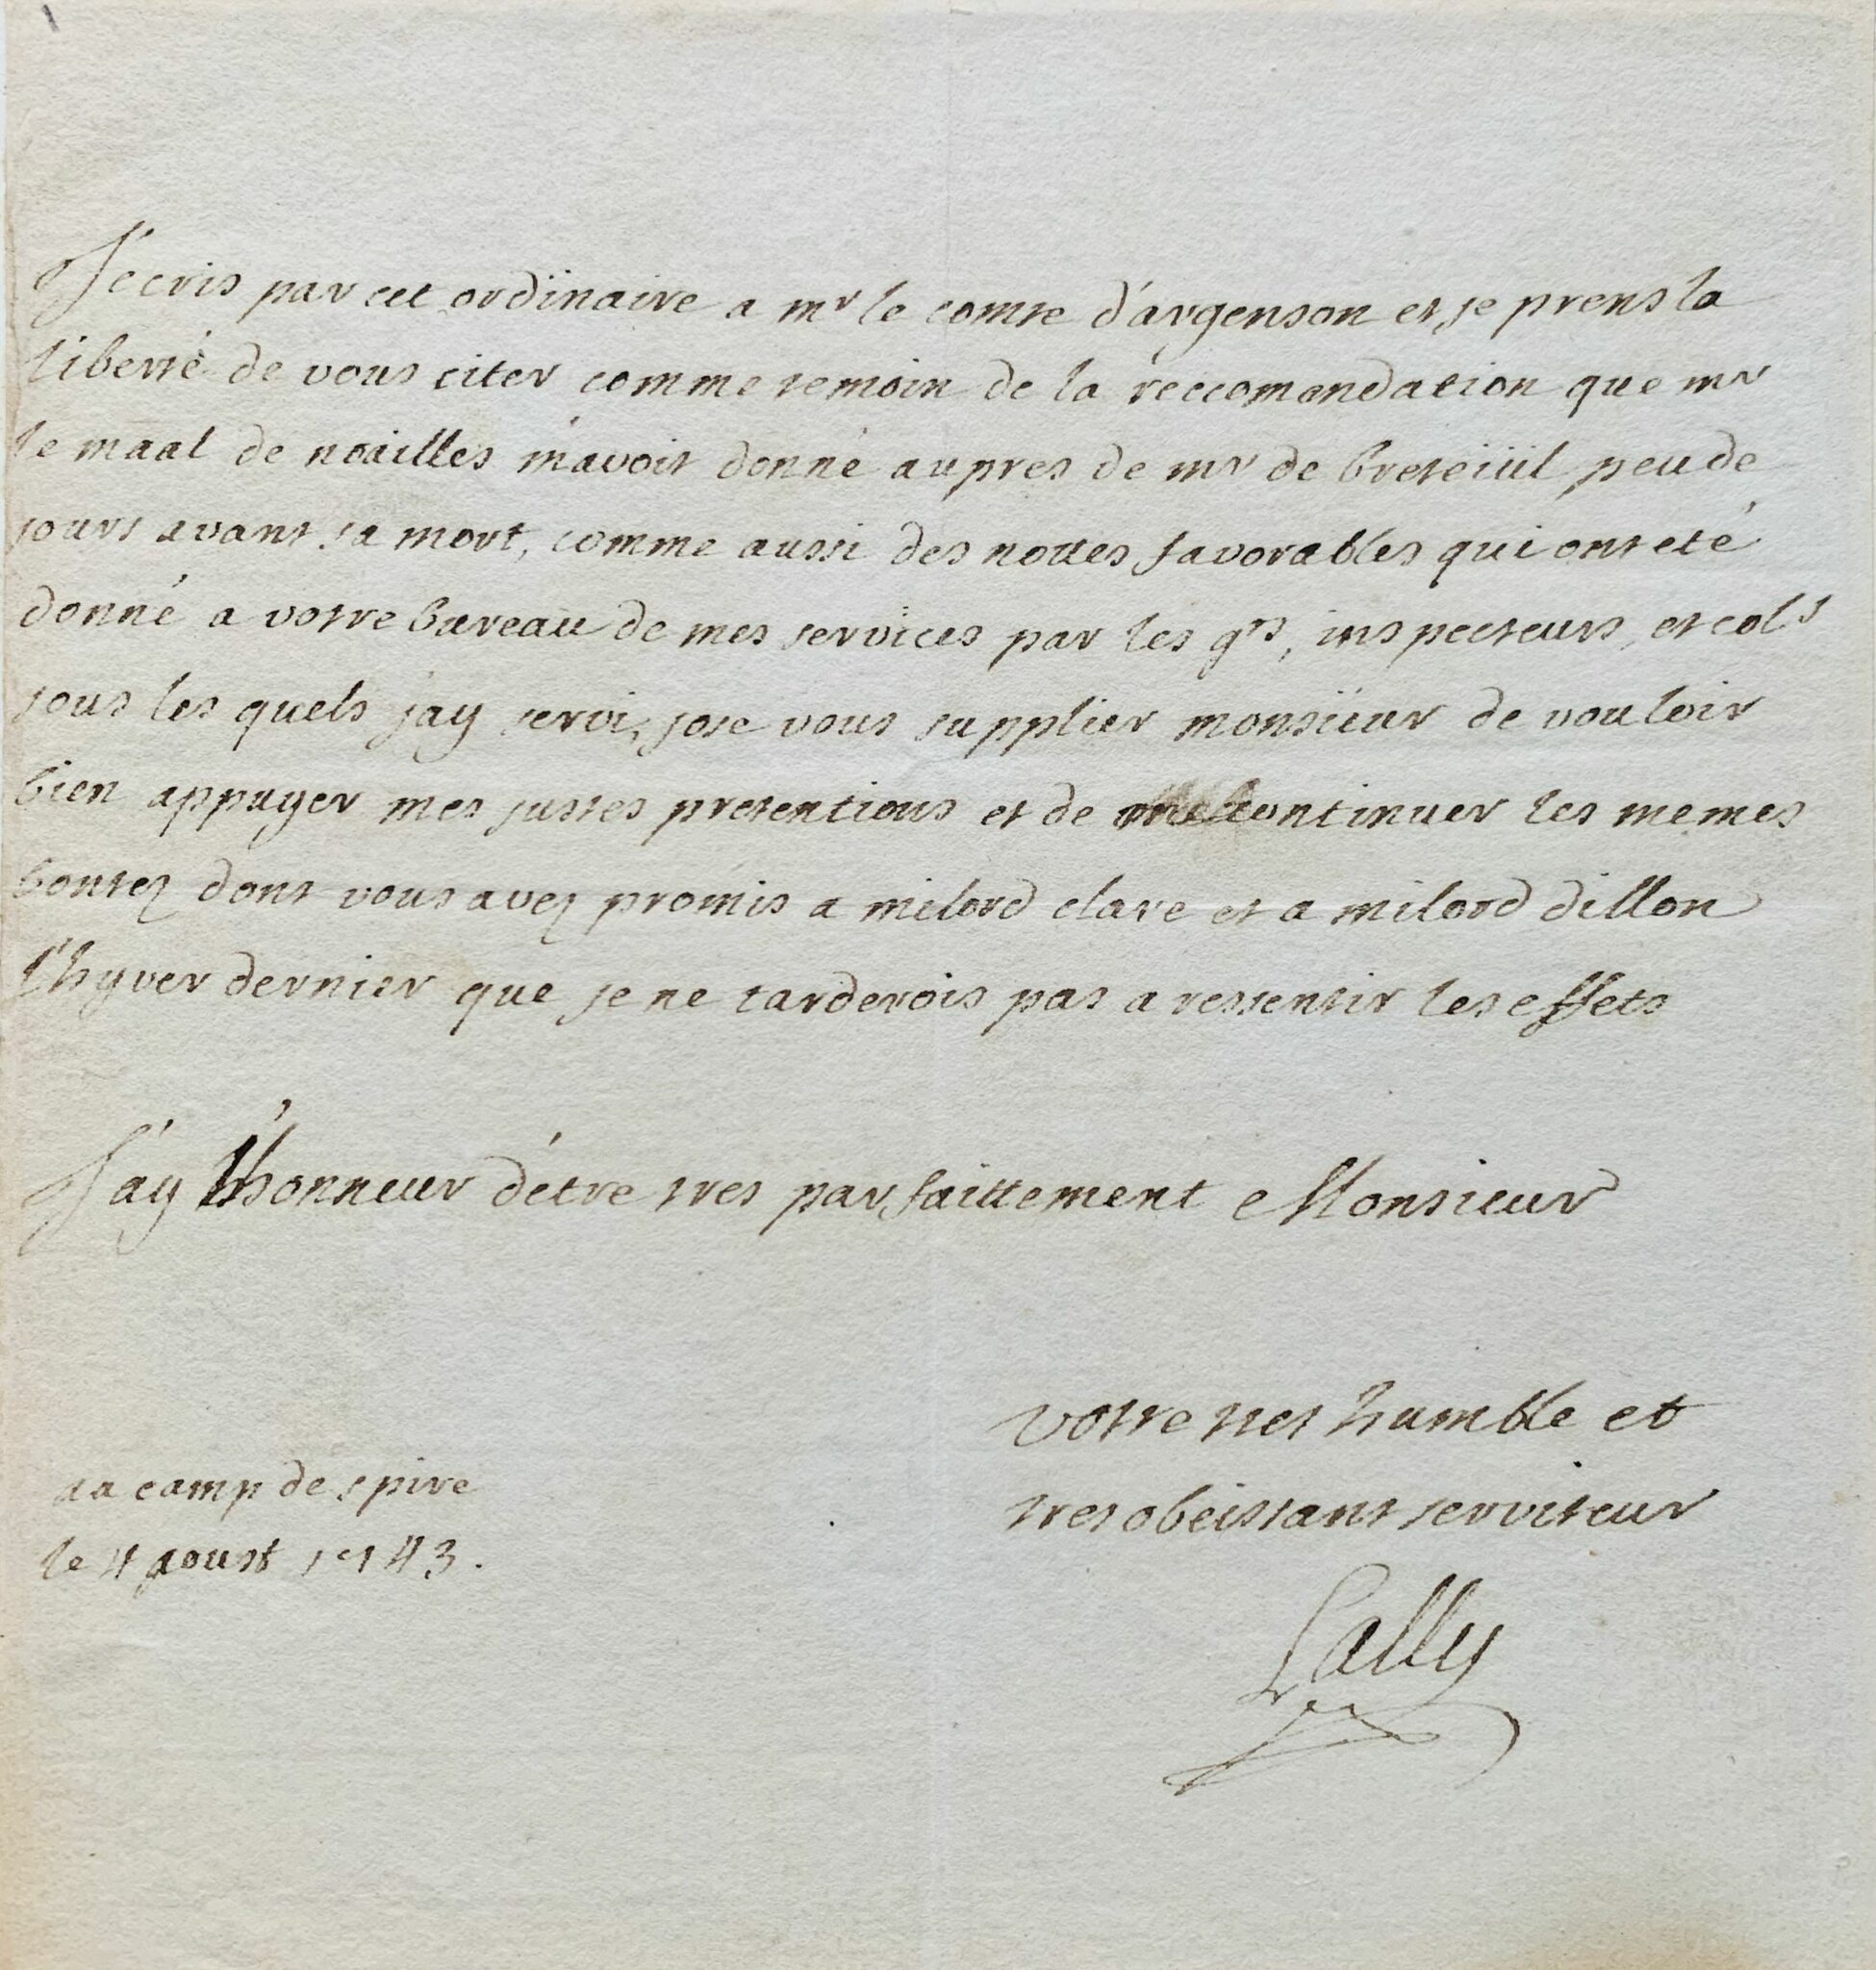 J'ecris par cet ordinaire a mr le comte d'argenson et je prens la
liberté de vous citer comme temoin de la reccomendation que mr
le maal de noailles m'avoit donné aupres de mr de breteüil peu de
jours avant sa mort, comme aussi des nottes favorables qui ont eté
donné a votre bureau de mes services par les grs, inspecteurs, et cols
sous les quels j'ay servi, jose vous supplier monsieur de vouloir
bien appuyer mes justes pretentions et de me continuer les memes
bontez dont vous avez promis a milord clare et a milord dillon
l'hyver dernier que je ne tarderois pas a ressentir les effets
J'ay l'honneur d'etre tres parfaittement Monsieur
votre tres humble et
tres obeissant serviteur
Lally
au camp de spire
le 4 aoust 1743.